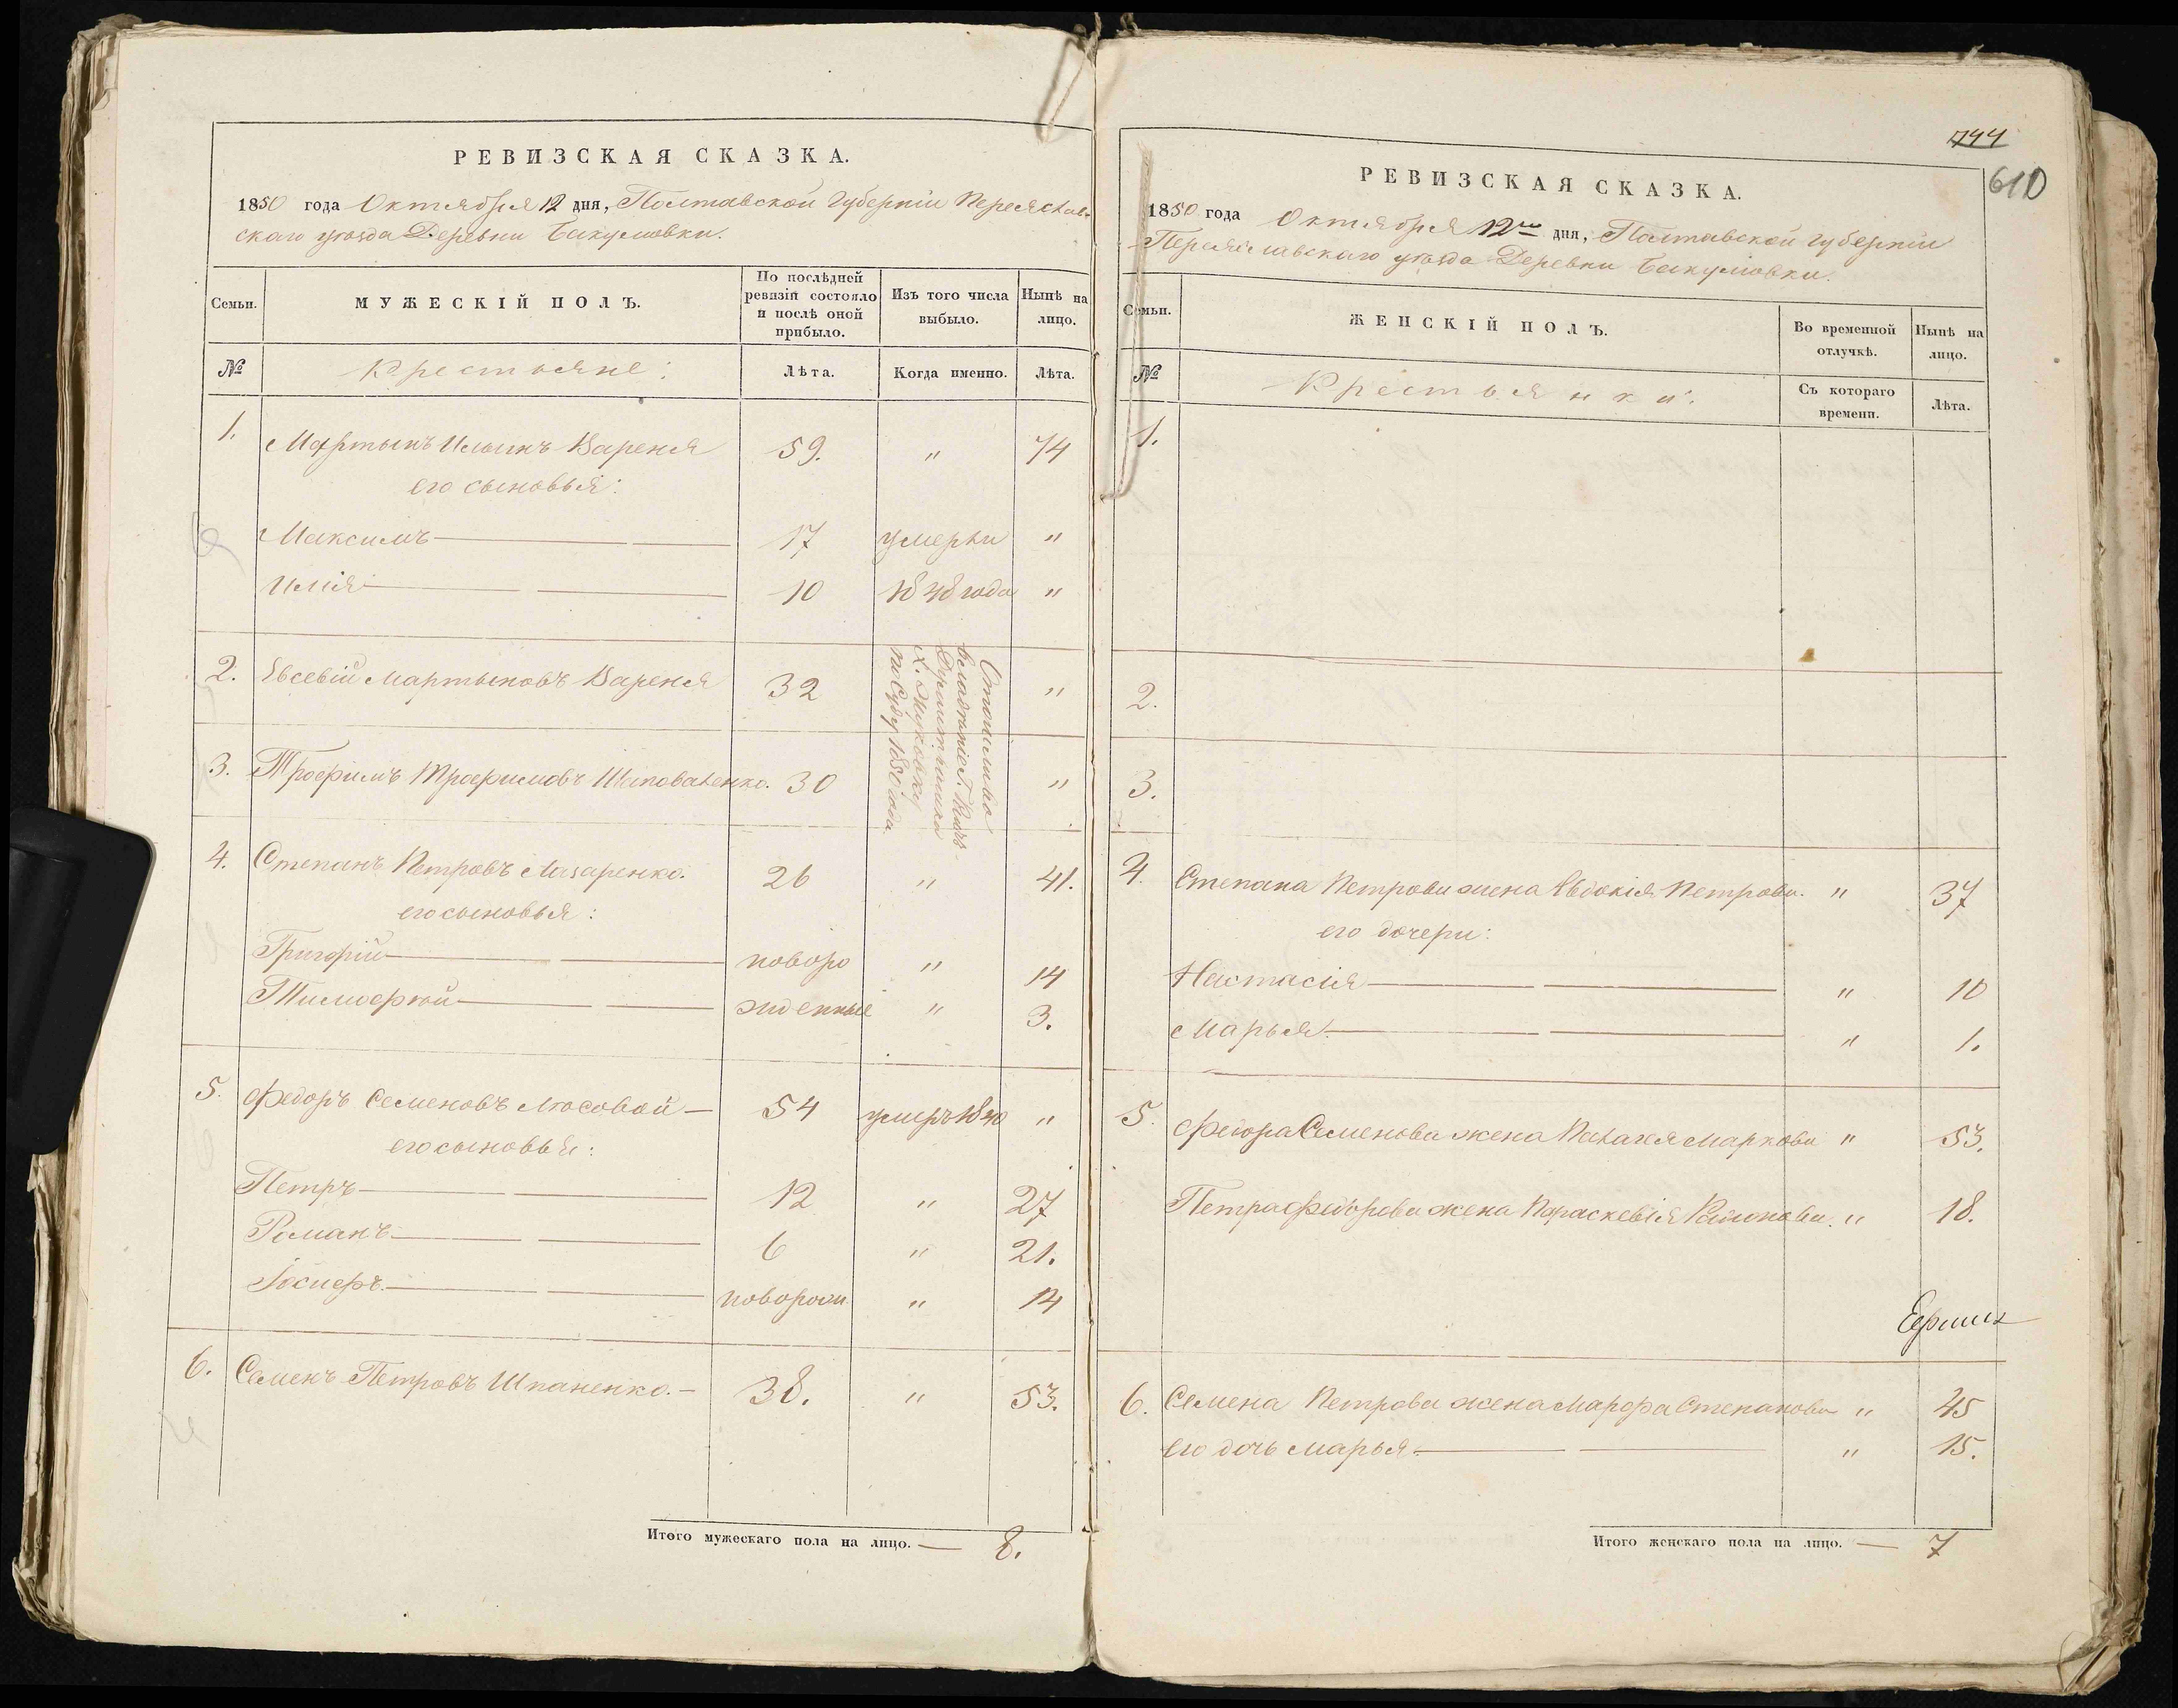 РЕВИЗСКАЯ СКАЗКА.
1850 года Октября 12 дня, Полтавской Губерніи Переяслав-
скаго уѣзда Деревни Бакумовки.
Семьи. МУЖЕСКІЙ ПОЛЪ. По послѣдней ревизіи состояло и послѣ оной прибыло. Изъ того числа выбыло. Нынѣ на лицо.
№ Крестьяне: Лѣта. Когда именно. Лѣта.
1. Мартынъ Ильинъ Вареня 59. " 74
его сыновья:
Максимъ 17 умерли "
Илія 10 1848 года "
2. Евсевій Мартыновъ Вареня 32 "
3. Трофимъ Трофимовъ Шаповаленко. 30 "
Отошли во
владѣніе Г.
по Суду 1850 года
4. Степанъ Петровъ Лазаренко. 26 " 41.
его сыновья:
Григорій новоро " 14
Тимофѣй жденные " 3.
5. Федоръ Семеновъ Лосовой 54 умеръ 1840 "
его сыновья:
Петръ 12 " 27
Романъ 6 " 21.
Іосифъ новорож. " 14
6. Семенъ Петровъ Шпаненко. 38. " 53.
Итого мужескаго пола на лицо. — 8.
744
610
РЕВИЗСКАЯ СКАЗКА.
1850 года Октября 12го дня, Полтавской губерніи
Переяславскаго уѣзда Деревни Бакумовки.
Семьи. ЖЕНСКІЙ ПОЛЪ. Во временной отлучкѣ. Нынѣ на лицо.
№ Крестьянки: Съ котораго времени. Лѣта.
1.
2.
3.
4. Степана Петрова жена Евдокія Петрова. " 37
его дочери:
Настасія " 10
Марья " 1.
5. Федора Семенова жена Пелагея Маркова " 53.
Петра Федорова жена Параскевія " 18.
6. Семена Петрова жена Марфа Степанова " 45
его дочь Марья " 15.
Итого женскаго пола на лицо. — 7